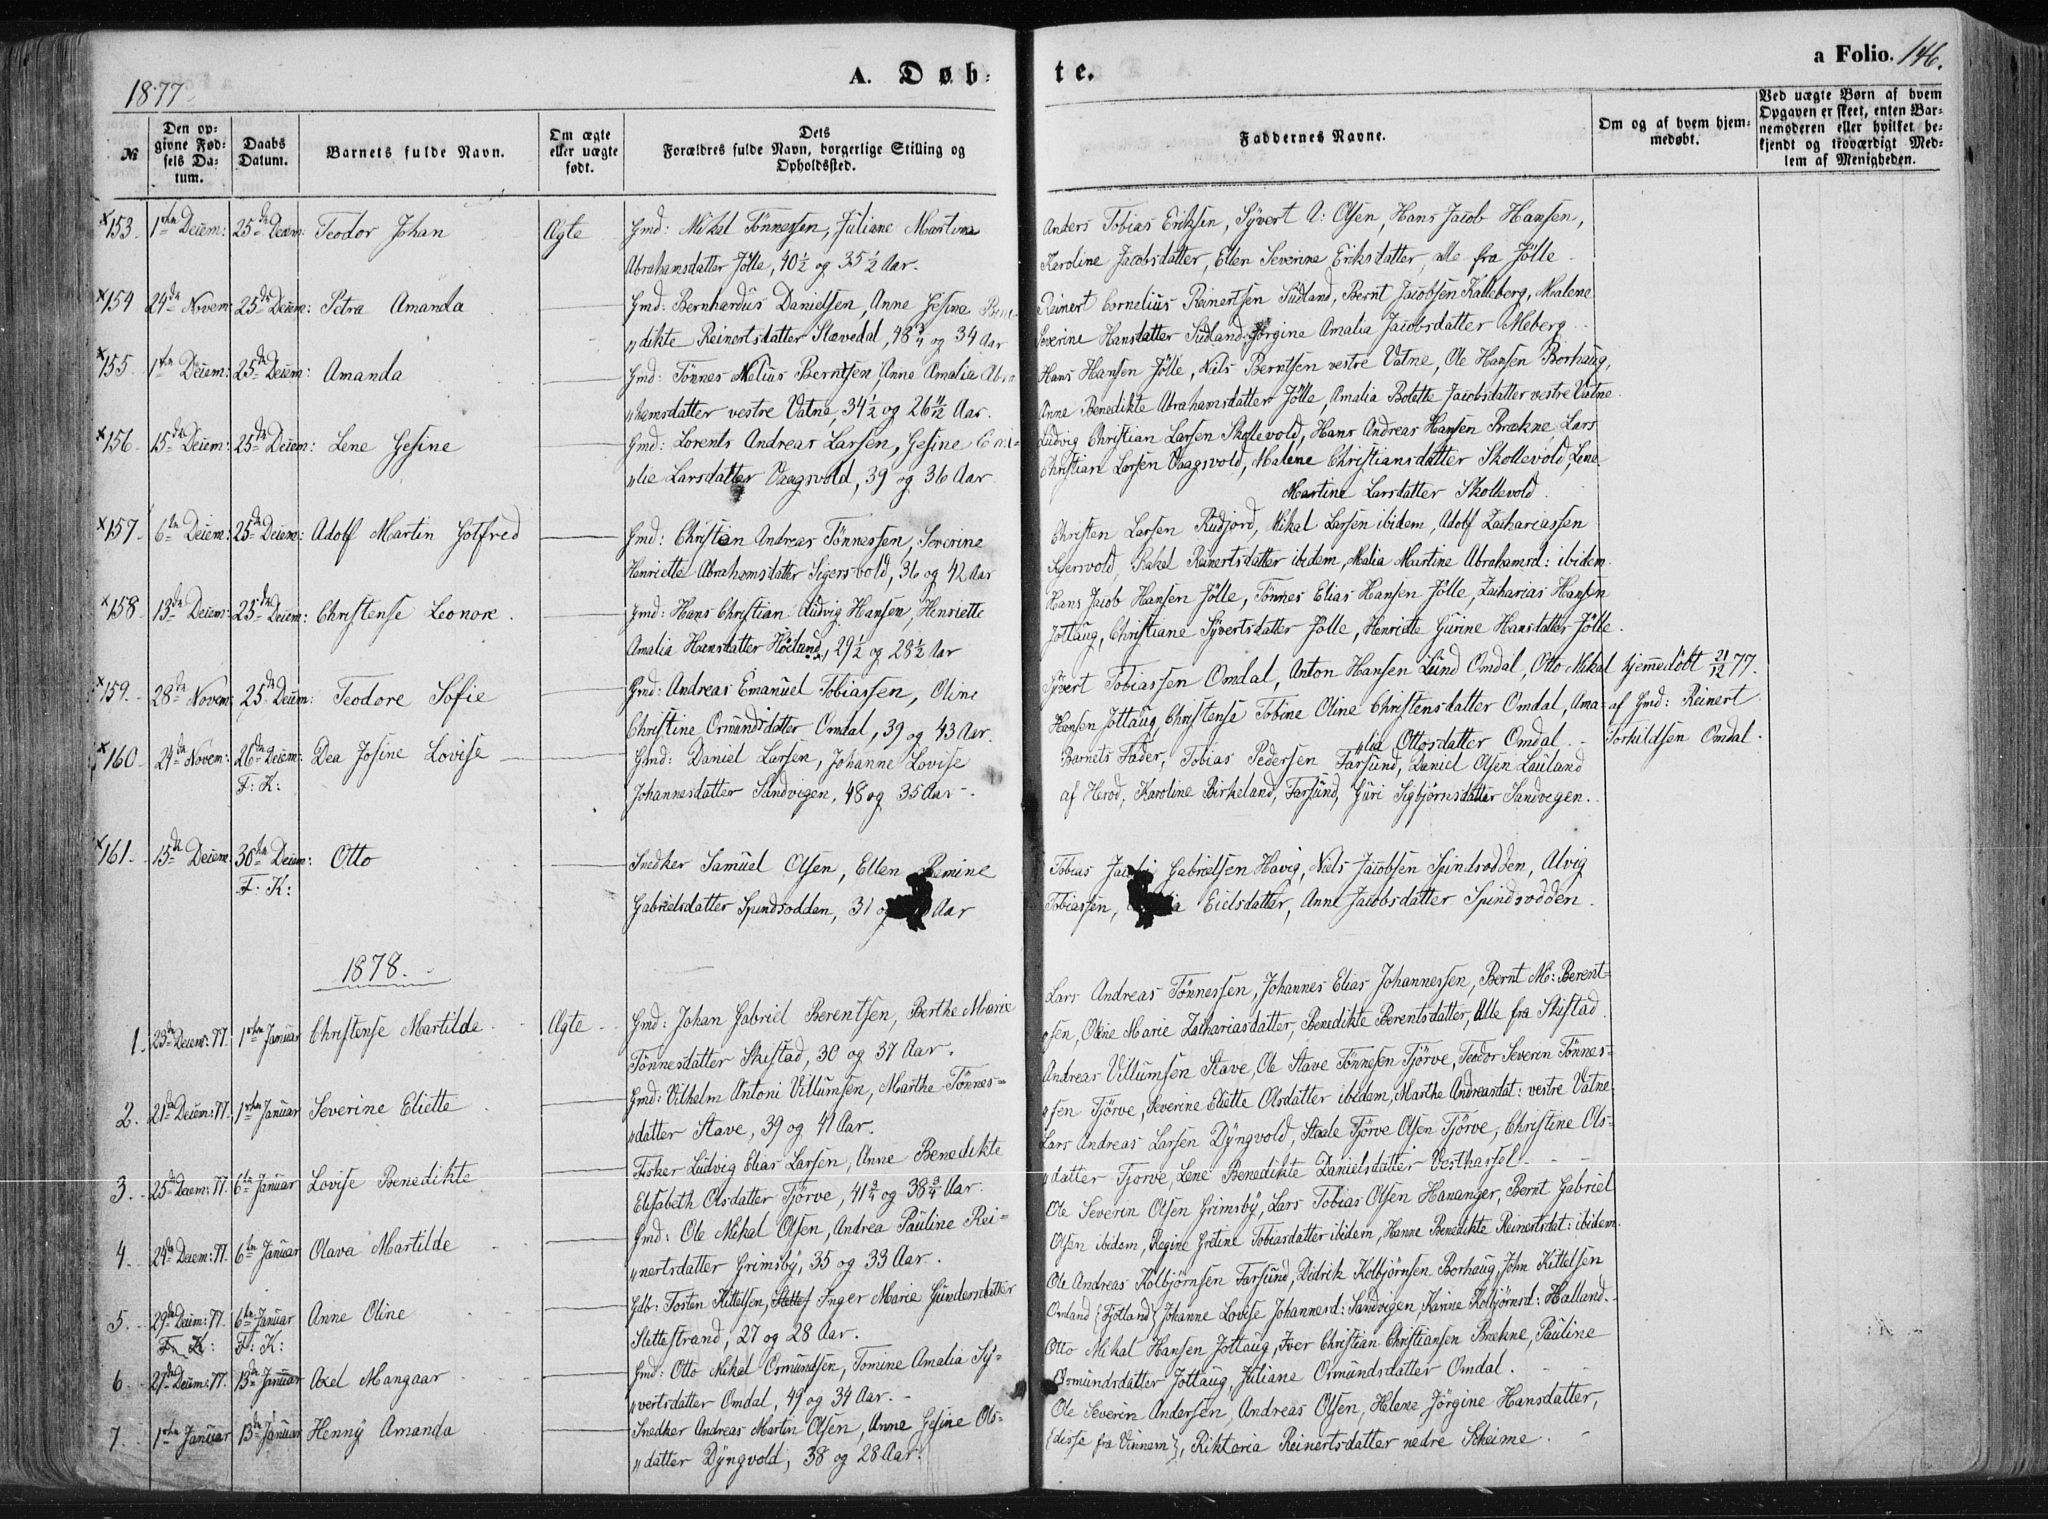 1877
A. Døb-
te.
a Folio. 146.
№
Den opgivne Fødsels Datum.
Daabs Datum.
Barnets fulde Navn.
Om ægte eller uægte født.
Dets Forældres fulde Navn, borgerlige Stilling og Opholdssted.
Faddernes Navne.
Om og af hvem hjemmedøbt.
Ved uægte Børn af hvem Opgaven er skeet, enten Barnemoderen eller hvilket bekjendt og troværdigt Medlem af Menigheden.
×153. 1ste Decem: 25de Decem: Teodor Johan Ægte Gmd: Mikel Tönnessen, Juliane Martina
Abrahamsdatter Jölle, 40 1/2 og 35 1/2 Aar.
Anders Tobias Eriksen, Syvert A: Olsen, Hans Jacob Hansen,
Karoline Jacobsdatter, Ellen Severine Eriksdatter, alle fra Jölle.
×154 24de Novem: 25de Decem: Petra Amanda Gmd: Bernhardus Danielsen, Anne Gesine Bene-
"dikte Reinertsdatter Stavedal, 48 3/4 og 34 Aar
Reinert Cornelius Reinertsen Sudland, Bernt Jacobsen Kalleberg, Malene
Severine Hansdatter Sudland, Jörgine Amalia Jacobsdatter Meberg.
×155. 1ste Decem: 25de Decem: Amanda Gmd: Tönnes Melius Berntsen, Anne Amalia Abra
"hamsdatter vestre Vatne, 34 1/2 og 26 11/12 Aar.
Hans Hansen Jölle, Niels Berntsen vestre Vatne, Ole Hansen Borhaug,
Anne Benedikte Abrahamsdatter Jölle, Amalia Bolette Jacobsdatter vestre Vatne.
×156. 15de Decem: 25de Decem: Lene Gesine Gmd: Lorents Andreas Larsen, Gesine Emi-
"lie Larsdatter Vaagsvold, 39 og 36 Aar.
Ludvig Christian Larsen Skollevold, Hans Andreas Hansen Brækne Lars
Christian Larsen Vaagsvold, Malene Christiansdatter Skollevold, Lene
Martine Larsdatter Skollevold.
×157. 6te Decem: 25de Decem: Adolf Martin Gotfred Gmd: Christian Andreas Tönnessen, Severine
Henriette Abrahamsdatter Sigersvold, 36 og 42 Aar
Christen Larsen Rudjord, Mikal Larsen ibidem, Adolf Zachariassen
Sigersvold, Rakel Reinertsdatter ibidem, Malia Martine Abrahamsd: ibidem.
×158. 13de Decem: 25de Decem: Christense Leonore. Gmd: Hans Christian Ludvig Hansen, Henriette
Amalia Hansdatter Höiland, 29 1/2 og 28 1/2 Aar
Hans Jacob Hansen Jölle, Tönnes Elias Hansen Jölle, Zacharias Hansen
Jöttaug, Christiane Syvertsdatter Jölle, Henriette Gurine Hansdatter Jölle.
×159. 28de Novem: 25de Decem: Teodore Sofie Gmd: Andreas Emanuel Tobiassen, Oline
Christine Osmundsdatter Omdal, 39 og 43 Aar.
Syvert Tobiassen Omdal, Anton Hansen Lund Omdal, Otto Mikal
Hansen Jöttaug, Christense Tobine Oline Christensdatter Omdal, Ama-
"lia Ottosdatter Omdal.
hjemmedöbt 21/12 77.
af Gmd: Reinert
Torkildsen Omdal.
×160. 24de Novem: 26de Decem: Dea Josine Lovise Gmd: Daniel Larsen, Johanne Lovise
F: K: Johannesdatter Sandvigen, 48 og 35 Aar.
Barnets Fader, Tobias Pedersen Farsund, Daniel Olsen Lauland
af Herod, Karoline Birkeland, Farsund, Guri Sigbjörnsdatter Sandvegen.
×161. 15de Decem: 30te Decem: Otto Snedker Samuel Olsen, Ellen
F. K: Gabrielsdatter Spindsodden, 31 og Aar
Tobias Gabrielsen Havig, Niels Jacobsen Spindsodden, Alvig
Tobiassen, Eielsdatter, Anne Jacobsdatter Spindsodden.
1878.
1. 23de Decem: 77. 1ste Januar Christense Martilde Ægte Gmd: Johan Gabriel Berentsen, Berthe Marie
Tönnesdatter Skistad, 30 og 37 Aar.
Lars Andreas Tönnessen, Johannes Elias Johannessen, Bernt M: Berent-
sen, Oline Marie Zachariasdatter, Benedikte Berentsdatter, Alle fra Skistad.
2. 21de Decem: 77. 1ste Januar Severine Eliette Gmd: Vilhelm Antoni Villumsen, Marthe Tönnes-
"datter Stave, 39 og 41 Aar.
Andreas Villumsen Stave, Ole Stave Tönnesen Tjörve, Teodor Severin Tönnes-
"sen Tjörve, Severine Eliette Olsdatter ibidem, Marthe Andreasdat: vestre Vatne
3. 25de Decem: 77. 6te Januar Lovise Benedikte Fisker Ludvig Elias Larsen, Anne Benedikte
Elisabeth Olsdatter Tjörve, 41 3/4 og 38 3/4 Aar.
Lars Andreas Larsen Dyngvold, Staale Tjörve Olsen Tjörve, Christine Ols-
"datter Tjorve, Lene Benedikte Danielsdatter Vesthassel
4. 24de Decem: 77. 6te Januar Olava Martilde Gmd: Ole Mikal Olsen, Andrea Pauline Rei-
"nertsdatter Grimsby, 35 og 33 Aar.
Ole Severin Olsen Grimsby, Lars Tobias Olsen Hananger, Bernt Gabriel
Olsen ibidem, Regine Gretine Tobiasdatter ibidem, Hanne Benedikte Reinertsdat: ibidem.
5. 29de Decem: 77. 6te Januar Anne Oline Gdb: Tosten Kittelsen, Inger Marie Gundersdatter
F. K: F: K: Slettestrand, 27 og 28 Aar.
Ole Andreas Kolbjörnsen Farsund, Didrik Kolbjörnsen Borhaug, John Kittelsen
Omland (Fjotland) Johanne Lovise Johannesd: Sandvigen, Karine Kolbjörnsd: Halland.
6. 27de Decem: 77. 13de Januar Axel Mangaar Gmd: Otto Mikal Osmundsen, Tomine Amalia Sy-
"vertsdatter Omdal, 49 og 34 Aar.
Otto Mikal Hansen Jöttaug, Iver Christian Christiansen Brækne, Pauline
Osmundsdatter Jöttaug, Juliane Osmundsdatter Omdal.
7. 1ste Januar 13de Januar Henny Amanda Snedker Andreas Martin Olsen, Anne Gesine Ols-
"datter Dyngvold, 38 og 28 Aar.
Ole Severin Andersen, Andreas Olsen, Helene Jörgine Hansdatter,
(disse fra Vinnem), Riktoria Reinertsdatter nedre Skeime.